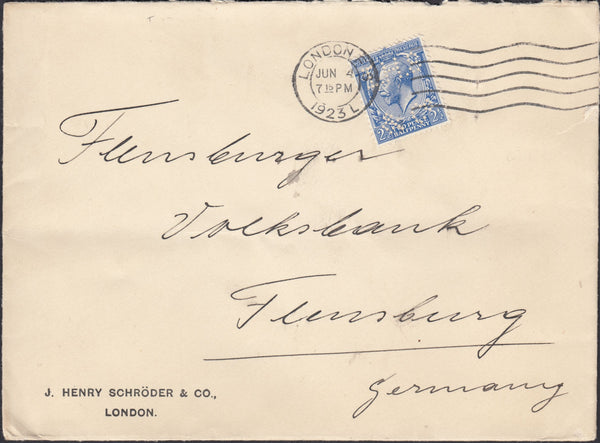 LONDON
JUN 4
7 15 PM
1923 L
2½ 2½
HALFPENNY
Flensburger
Volksbank
Flensburg
Germany
J. HENRY SCHRÖDER & CO.,
LONDON.